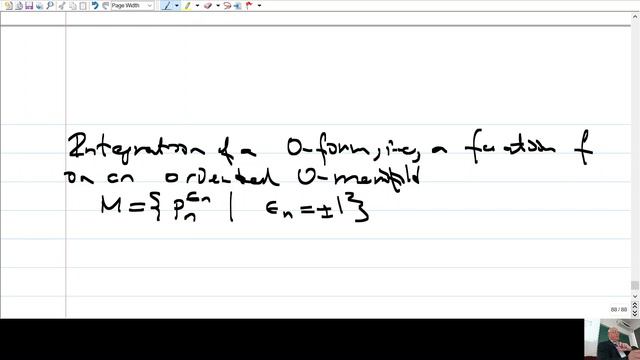 Page Width
Integration of a 0-form, i.e., a function f
on an oriented 0-manifold
M = { p_n^{ε_n} | ε_n = ±1 }
88 / 88